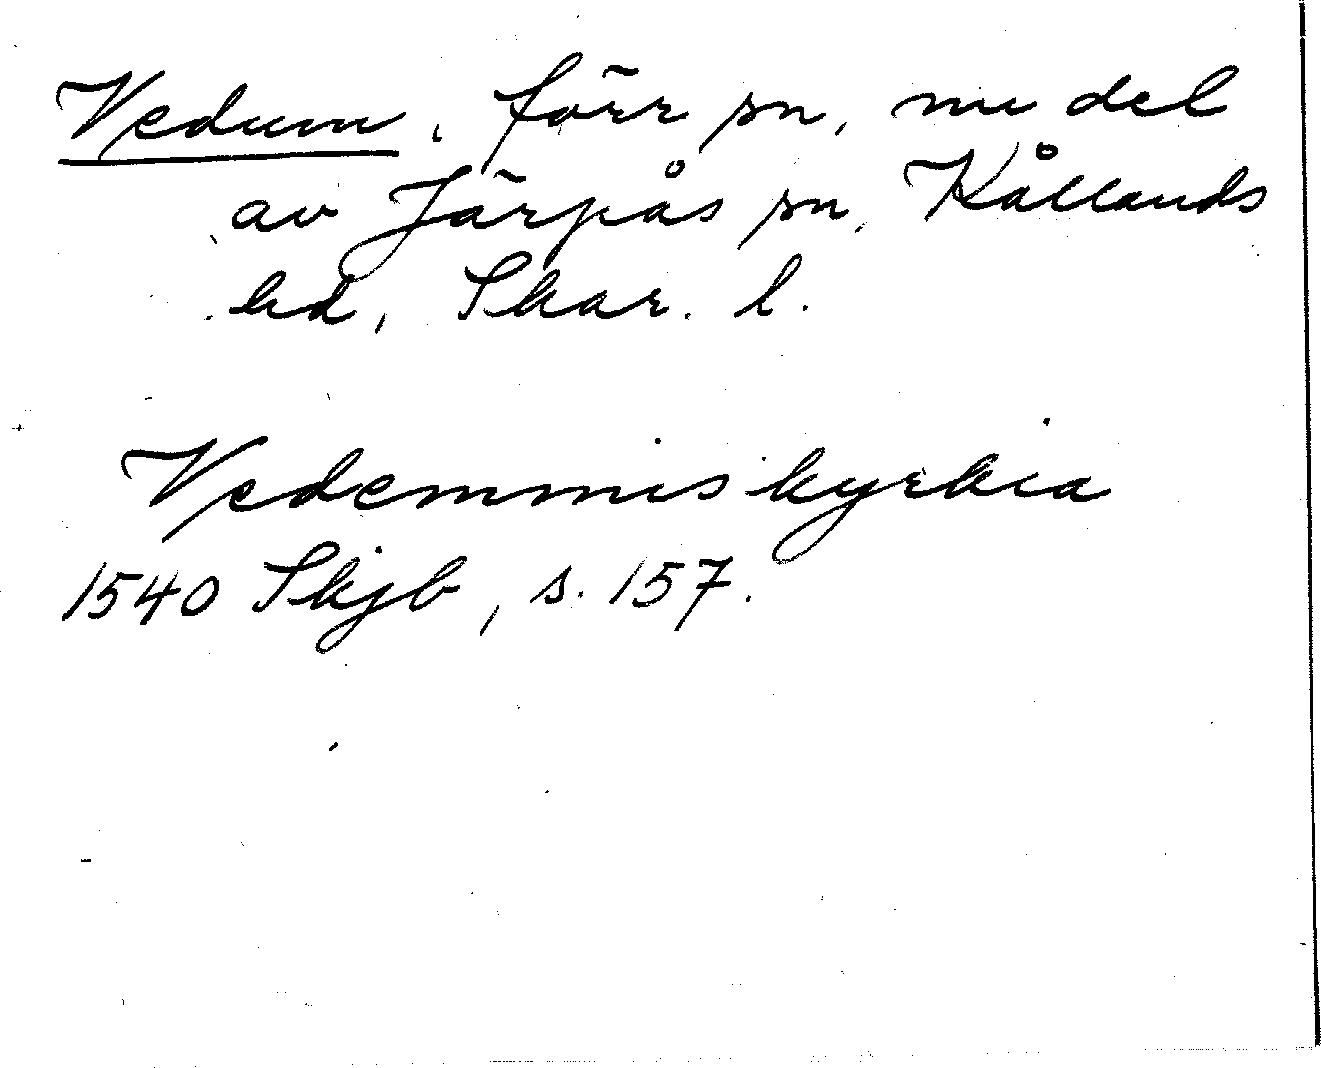 Vedum, förr sn, nu del
av Järpås sn, Kållands
hd, Skar. l.
Vedemmis kyrkia
1540 Skjb, s. 157.